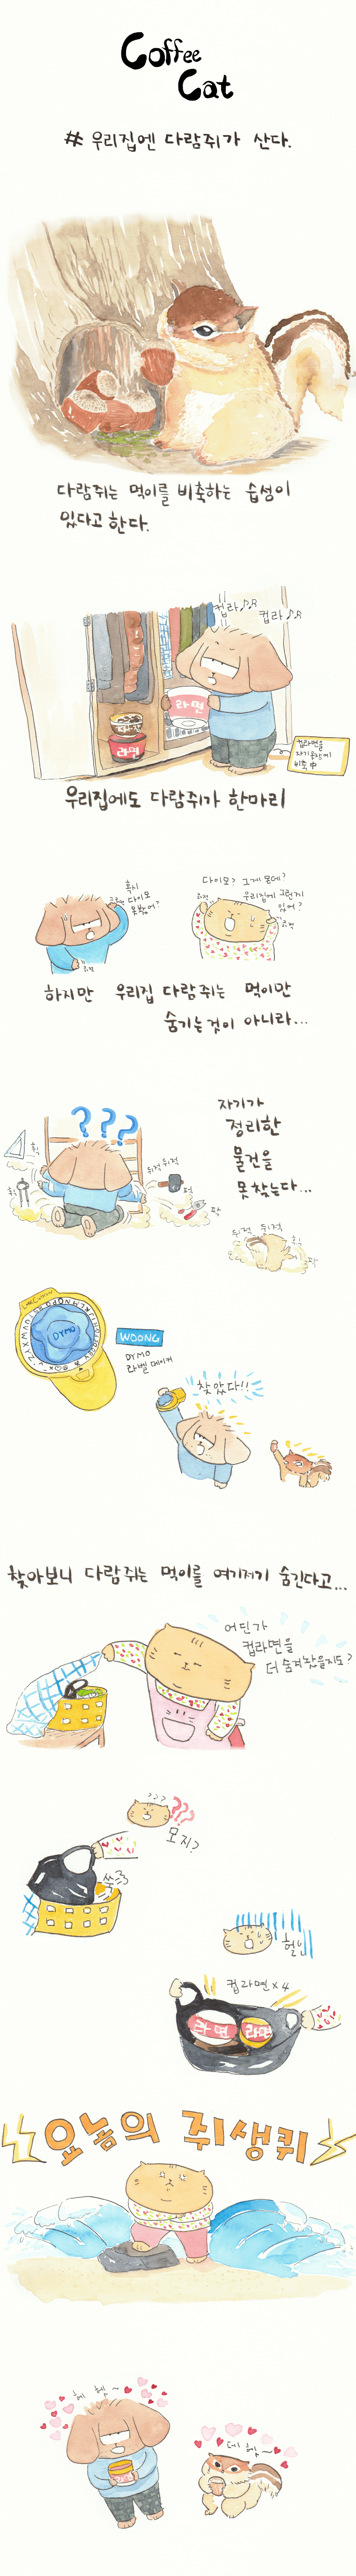 Coffee
Cat
# 우리집엔 다람쥐가 산다.
다람쥐는 먹이를 비축하는 습성이
있다고 한다.
컵라♪♬
컵라♪♬
라면
라면
컵라면을
자기옷장에
비축 中
우리집에도 다람쥐가 한마리
혹시
다이모
못봤어?
다이모? 그게 뭔데?
우리집에 그런게
있어?
하지만 우리집 다람쥐는 먹이만
숨기는것이 아니라...
???
자기가
정리한
물건을
못찾는다...
휙
휙
뒤적 뒤적
퍽
팍
뒤적 뒤적
휙
팍
DYMO
WDONG
DYMO
라벨메이커
찾았다!!
찾아보니 다람쥐는 먹이를 여기저기 숨긴다고...
어딘가
컵라면을
더 숨겨놨을지도?
???
모지?
쑥
헐
컵라면 x 4
라면
라면
오놈의 쥐생퀴
헤헷~
데헷~